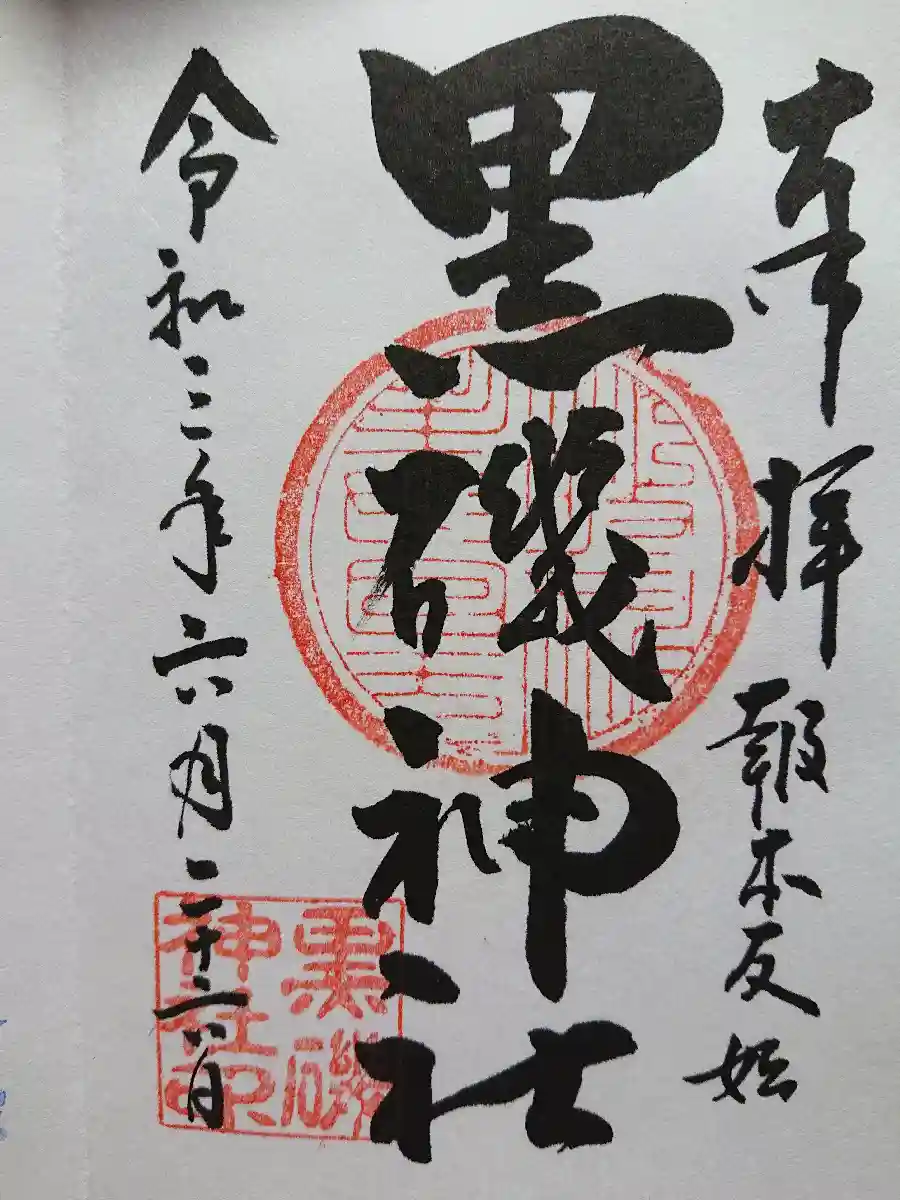 奉拝 報本反始
黒磯神社
令和二年六月二十六日
黒磯
神社印